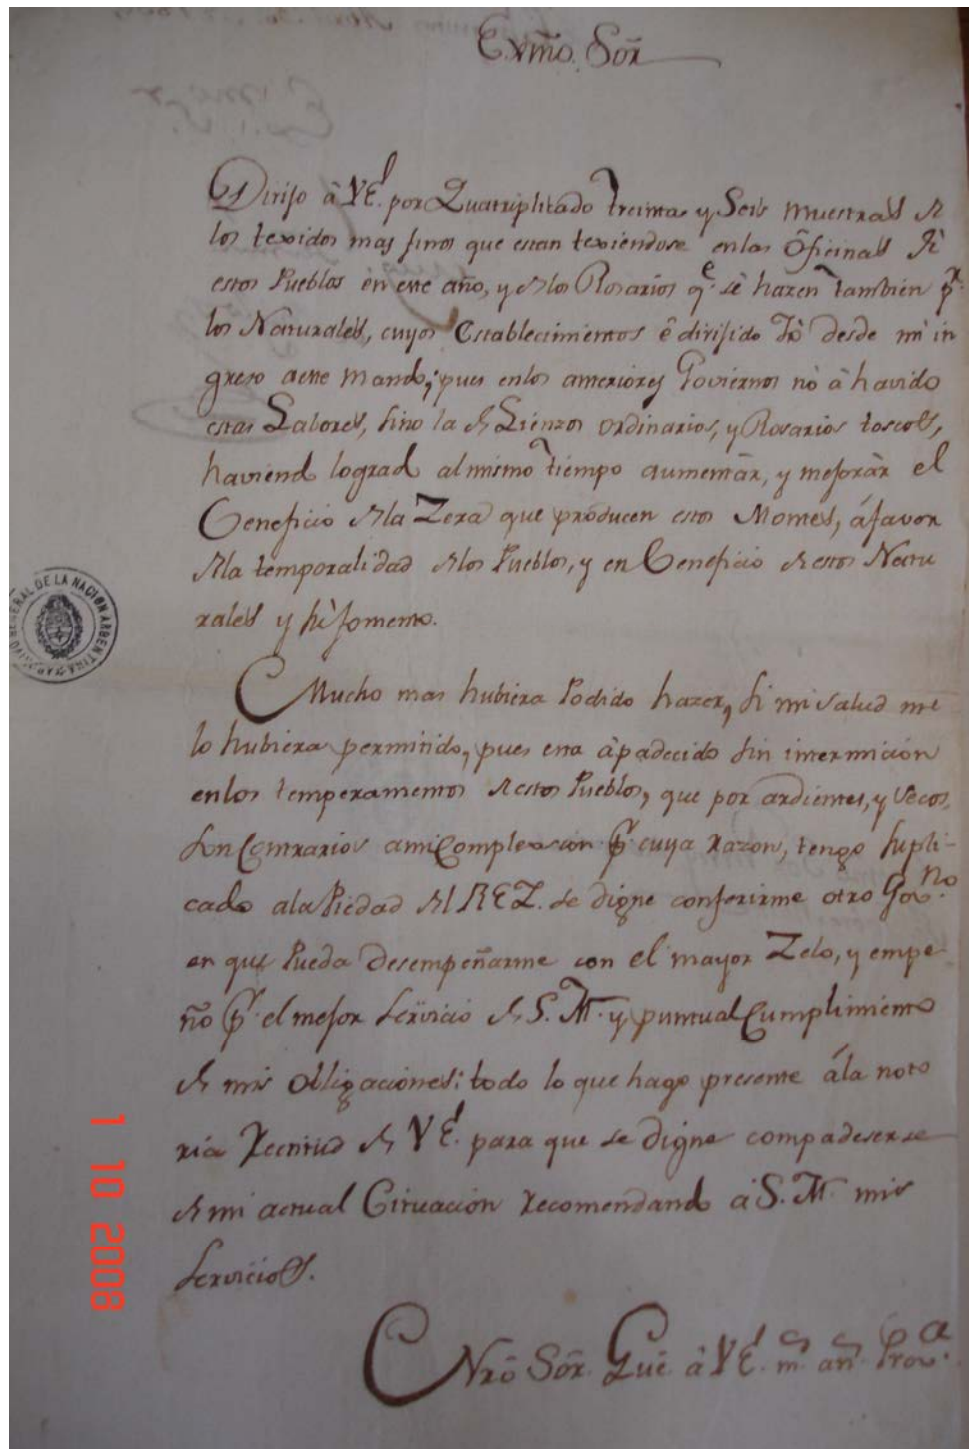 Exmo. Sor
Dirijo â VE. por Quatriplicado treinta y Seis muestras de
los texidos mas finos que estan texiendose en las Ôficinas dè
estos Pueblos en este año, y de los Rosarios qe. sè hazen tambien pr.
los Naturales, cuyos Establecimientos ê dirijido Yò desde mi in
greso a este mando; pues en los anteriores Goviernos nò à havido
estas Labores, sino la de Lienzos ordinarios, y Rosarios toscos,
haviendo logrado al mismo tiempo aumentàr, y mejoràr el
Beneficio de la Zera que producen estos Montes, áfavor
de la temporalidad de los Pueblos, y en Beneficio de estos Natu
rales y sù fomento.
Mucho mas hubiera Podido hazer, si mi salud me
lo hubiera permitido, pues esta à padecido sin intermición
en los temperamentos de estos Pueblos, que por ardientes, y Secos,
son Contrarios a mi Complexion pr. cuya razon, tengo supli-
cado a la Piedad del REY. se digne conferirme otro Govno.
en que Pueda desempeñarme con el mayor Zelo, y empe
ño pr. el mejor servicio de S. M. y puntual Cumplimiento
de mis obligaciones: todo lo que hago presente á la noto
ria rectitud de VE. para que se digne compadeserse
de mi actual Cituación recomendando à S. M. mis
servicios.
Nrô Sôr. Gue. à VE. ms. añs. Prova.
ARCHIVO GENERAL DE LA NACION ARGENTINA
1 10 2008